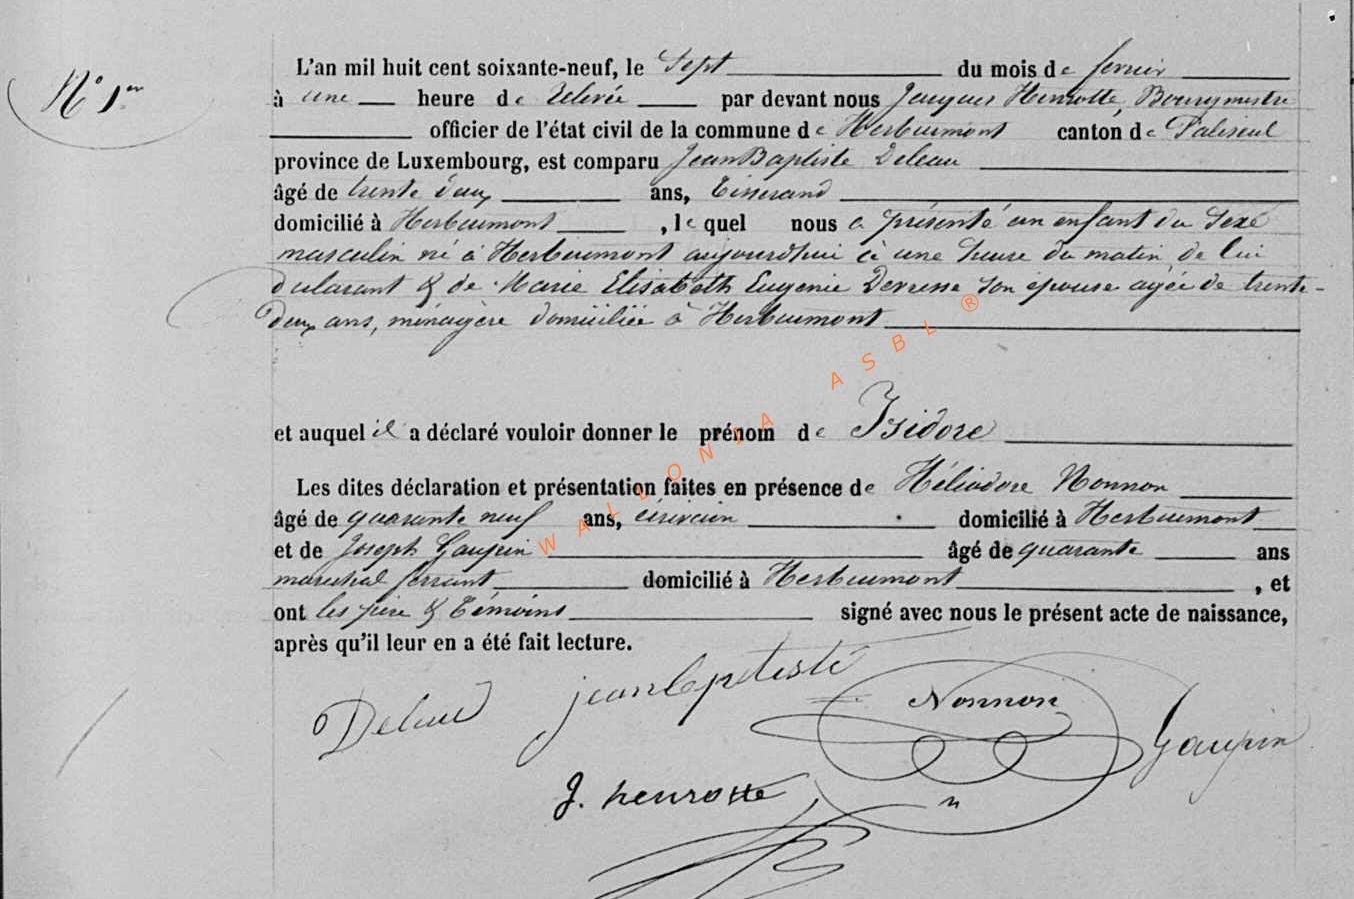 N° 1er
L'an mil huit cent soixante-neuf, le Sept du mois de fevrier
à une heure de relevée par devant nous Jacques Henrotte, Bourgmestre
officier de l'état civil de la commune de Herbeumont canton de Paliseul
province de Luxembourg, est comparu Jean Baptiste Deleau
âgé de trente deux ans, Tisserand
domicilié à Herbeumont, le quel nous a présenté un enfant du Sexe
masculin né à Herbeumont aujourd'hui à une heure du matin de lui
déclarant & de Marie Elisabeth Eugenie Devresse son épouse agée de trente-
deux ans, ménagère domiciliée à Herbeumont
et auquel il a déclaré vouloir donner le prénom de Isidore
Les dites déclaration et présentation faites en présence de Héliodore Nonnon
âgé de quarante neuf ans, domicilié à Herbeumont
et de Joseph Gaupin âgé de quarante ans
maréchal ferrant domicilié à Herbeumont, et
ont les père & Témoins signé avec nous le présent acte de naissance,
après qu'il leur en a été fait lecture.
Deleau jean baptiste Nonnon Gaupin
J. henrotte n
WALLONIA ASBL ®